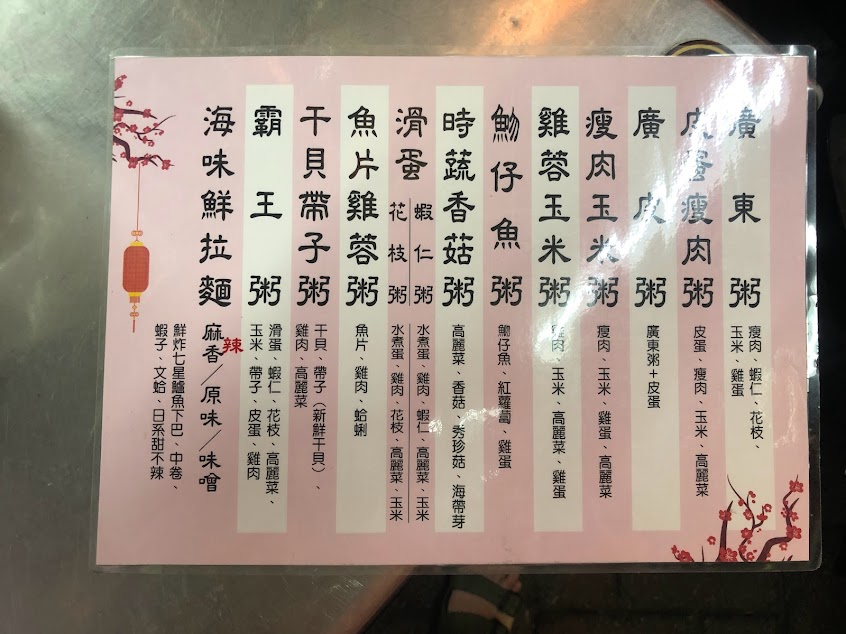 廣東粥
瘦肉、蝦仁、花枝、
玉米、雞蛋
皮蛋瘦肉粥
皮蛋、瘦肉、玉米、高麗菜
廣皮粥
廣東粥+皮蛋
瘦肉玉米粥
瘦肉、玉米、雞蛋、高麗菜
雞蓉玉米粥
雞肉、玉米、高麗菜、雞蛋
魩仔魚粥
魩仔魚、紅蘿蔔、雞蛋
時蔬香菇粥
高麗菜、香菇、秀珍菇、海帶芽
滑蛋
蝦仁粥
水煮蛋、雞肉、蝦仁、高麗菜、玉米
花枝粥
水煮蛋、雞肉、花枝、高麗菜、玉米
魚片雞蓉粥
魚片、雞肉、蛤蜊
干貝帶子粥
干貝、帶子(新鮮干貝)、
雞肉、高麗菜
霸王粥
滑蛋、蝦仁、花枝、高麗菜、
玉米、帶子、皮蛋、雞肉
海味鮮拉麵
辣
麻香/原味/味噌
鮮炸七星鱸魚下巴、中卷、
蝦子、文蛤、日系甜不辣